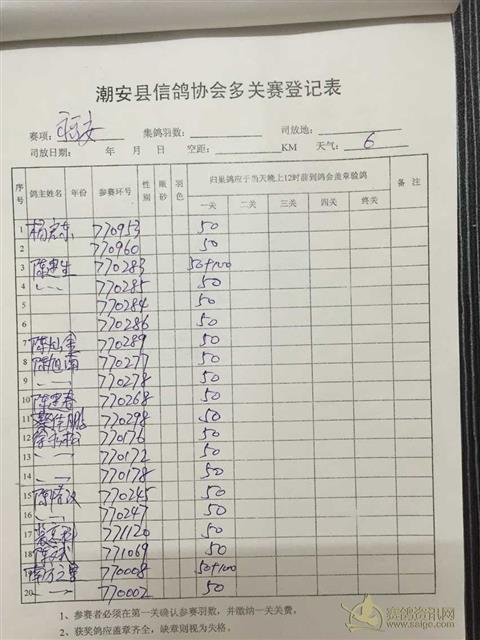 潮安县信鸽协会多关赛登记表
赛项: 集鸽羽数: 司放地:
司放日期: 年 月 日 空距: KM 天气: 6
序号 鸽主姓名 年份 参赛环号 性别 眼砂 羽色 归巢鸽应于当天晚上12时前到鸽会盖章验鸽 备注
一关 二关 三关 四关 终关
1 杨宏东 770953 50
2 770960 50
3 陈建生 770283 50+100
4 770285 50
5 770284 50
6 770286 50
7 770289 50
8 陈旭南 770277 50
9 770278 50
10 陈建春 770268 50
11 蔡信鹏 770298 50
12 770176 50
13 770172 50
14 770178 50
15 770245 50
16 770247 50
17 771120 50
18 771069 50
19 南方之星 770008 50+100
20 770002 50
1、参赛者必须在第一关确认参赛羽数，并缴纳一关关费。
2、获奖鸽应盖章齐全，缺章则视为失格。
赛鸽资讯网
www.saige.com